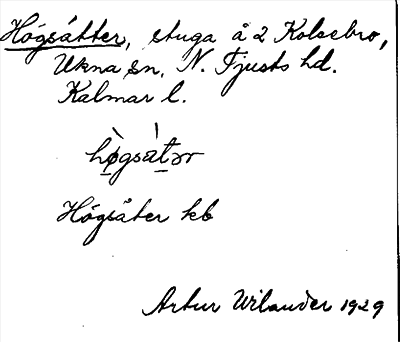 Högsätter, stuga å 2 Kolsebro,
Ukna sn, N. Tjusts hd.
Kalmar l.
hø̀gsátər
Högsäter kb
Artur Wilander 1929